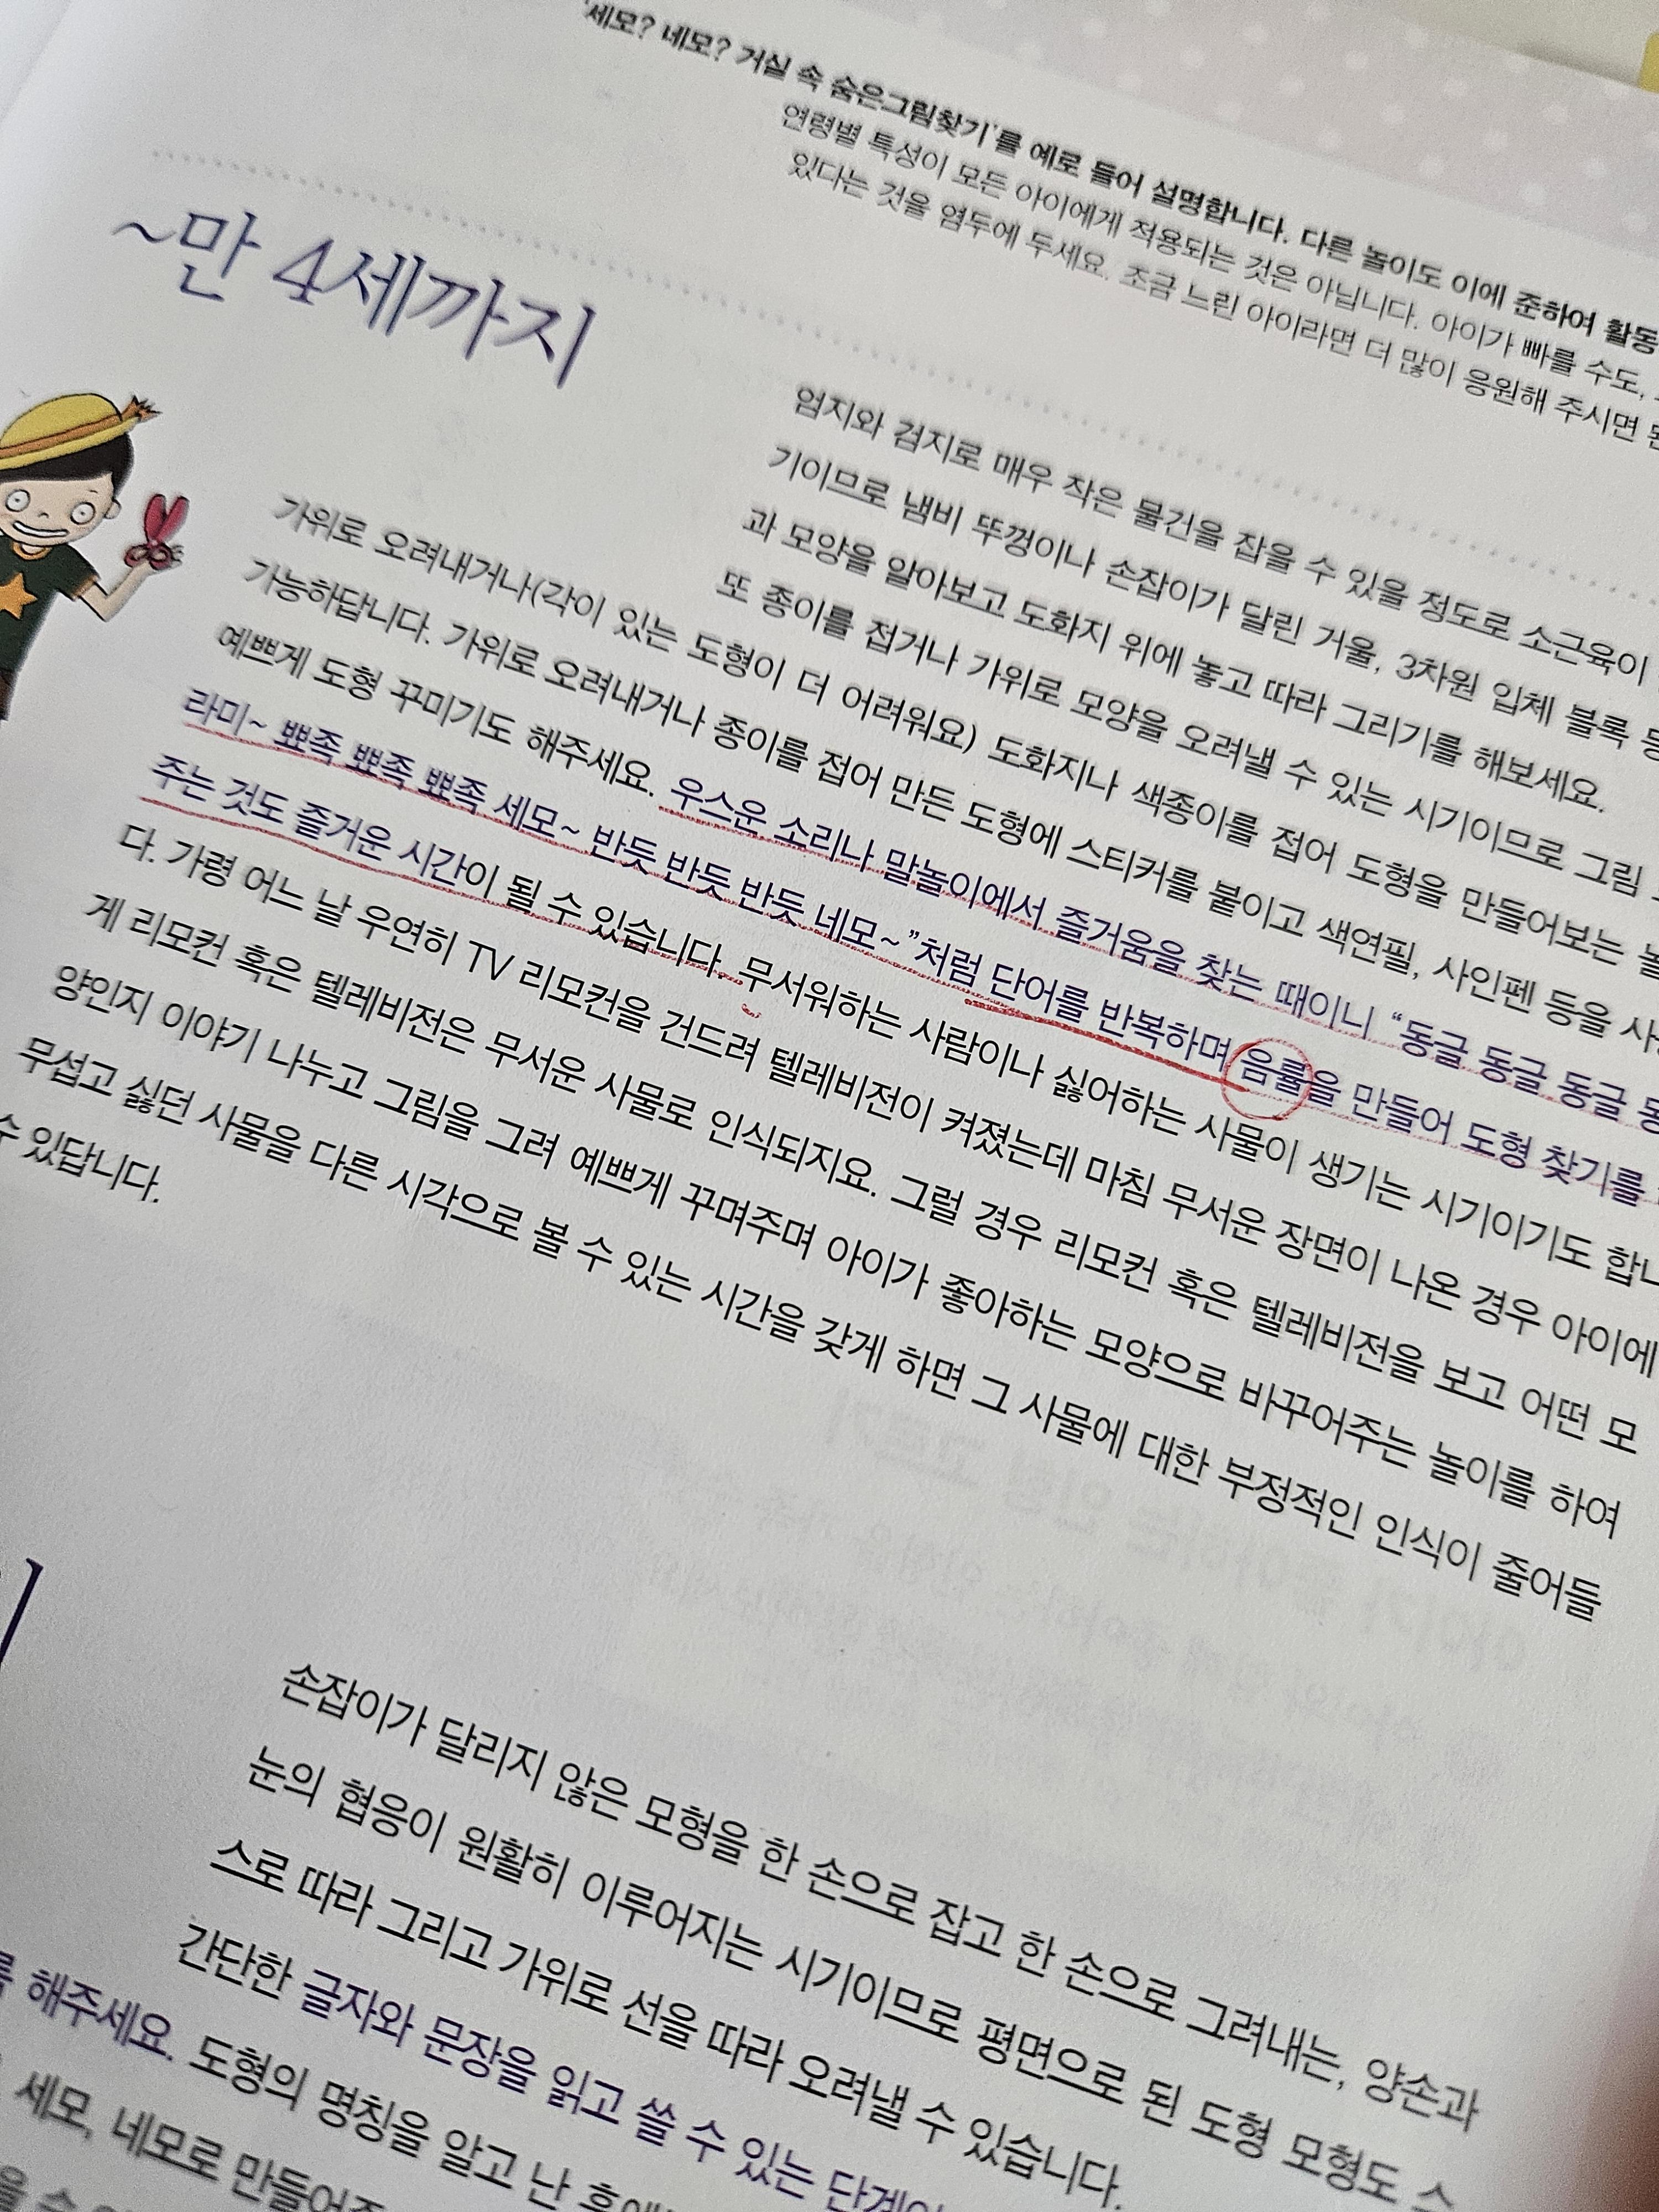 '세모? 네모? 거실 속 숨은그림찾기'를 예로 들어 설명합니다. 다른 놀이도 이에 준하여 활동
연령별 특성이 모든 아이에게 적용되는 것은 아닙니다. 아이가 빠를 수도,
있다는 것을 염두에 두세요. 조금 느린 아이라면 더 많이 응원해 주시면
~만 4세까지
엄지와 검지로 매우 작은 물건을 잡을 수 있을 정도로 소근육이
기이므로 냄비 뚜껑이나 손잡이가 달린 거울, 3차원 입체 블록
과 모양을 알아보고 도화지 위에 놓고 따라 그리기를 해보세요.
또 종이를 접거나 가위로 모양을 오려낼 수 있는 시기이므로 그림
가위로 오려내거나(각이 있는 도형이 더 어려워요) 도화지나 색종이를 접어 도형을 만들어보는
가능하답니다. 가위로 오려내거나 종이를 접어 만든 도형에 스티커를 붙이고 색연필, 사인펜 등을
예쁘게 도형 꾸미기도 해주세요. 우스운 소리나 말놀이에서 즐거움을 찾는 때이니 “동글 동글 동글
라미~ 뾰족 뾰족 뾰족 세모~ 반듯 반듯 반듯 네모~”처럼 단어를 반복하며 음률을 만들어 도형 찾기를
주는 것도 즐거운 시간이 될 수 있습니다. 무서워하는 사람이나 싫어하는 사물이 생기는 시기이기도 합니
다. 가령 어느 날 우연히 TV 리모컨을 건드려 텔레비전이 켜졌는데 마침 무서운 장면이 나온 경우 아이에
게 리모컨 혹은 텔레비전은 무서운 사물로 인식되지요. 그럴 경우 리모컨 혹은 텔레비전을 보고 어떤 모
양인지 이야기 나누고 그림을 그려 예쁘게 꾸며주며 아이가 좋아하는 모양으로 바꾸어주는 놀이를 하여
무섭고 싫던 사물을 다른 시각으로 볼 수 있는 시간을 갖게 하면 그 사물에 대한 부정적인 인식이 줄어들
수 있답니다.
손잡이가 달리지 않은 모형을 한 손으로 잡고 한 손으로 그려내는, 양손과
눈의 협응이 원활히 이루어지는 시기이므로 평면으로 된 도형 모형도 스
스로 따라 그리고 가위로 선을 따라 오려낼 수 있습니다.
간단한 글자와 문장을 읽고 쓸 수 있는
해주세요. 도형의 명칭을 알고 난
세모, 네모로